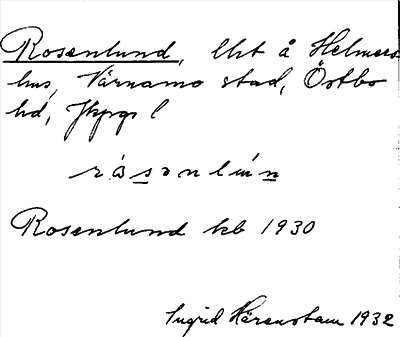 Rosenlund, lht å Helmers
hus, Värnamo stad, Östbo
hd, Jkpgs l
Rosenlund kb 1930
Ingrid Härenstam 1932